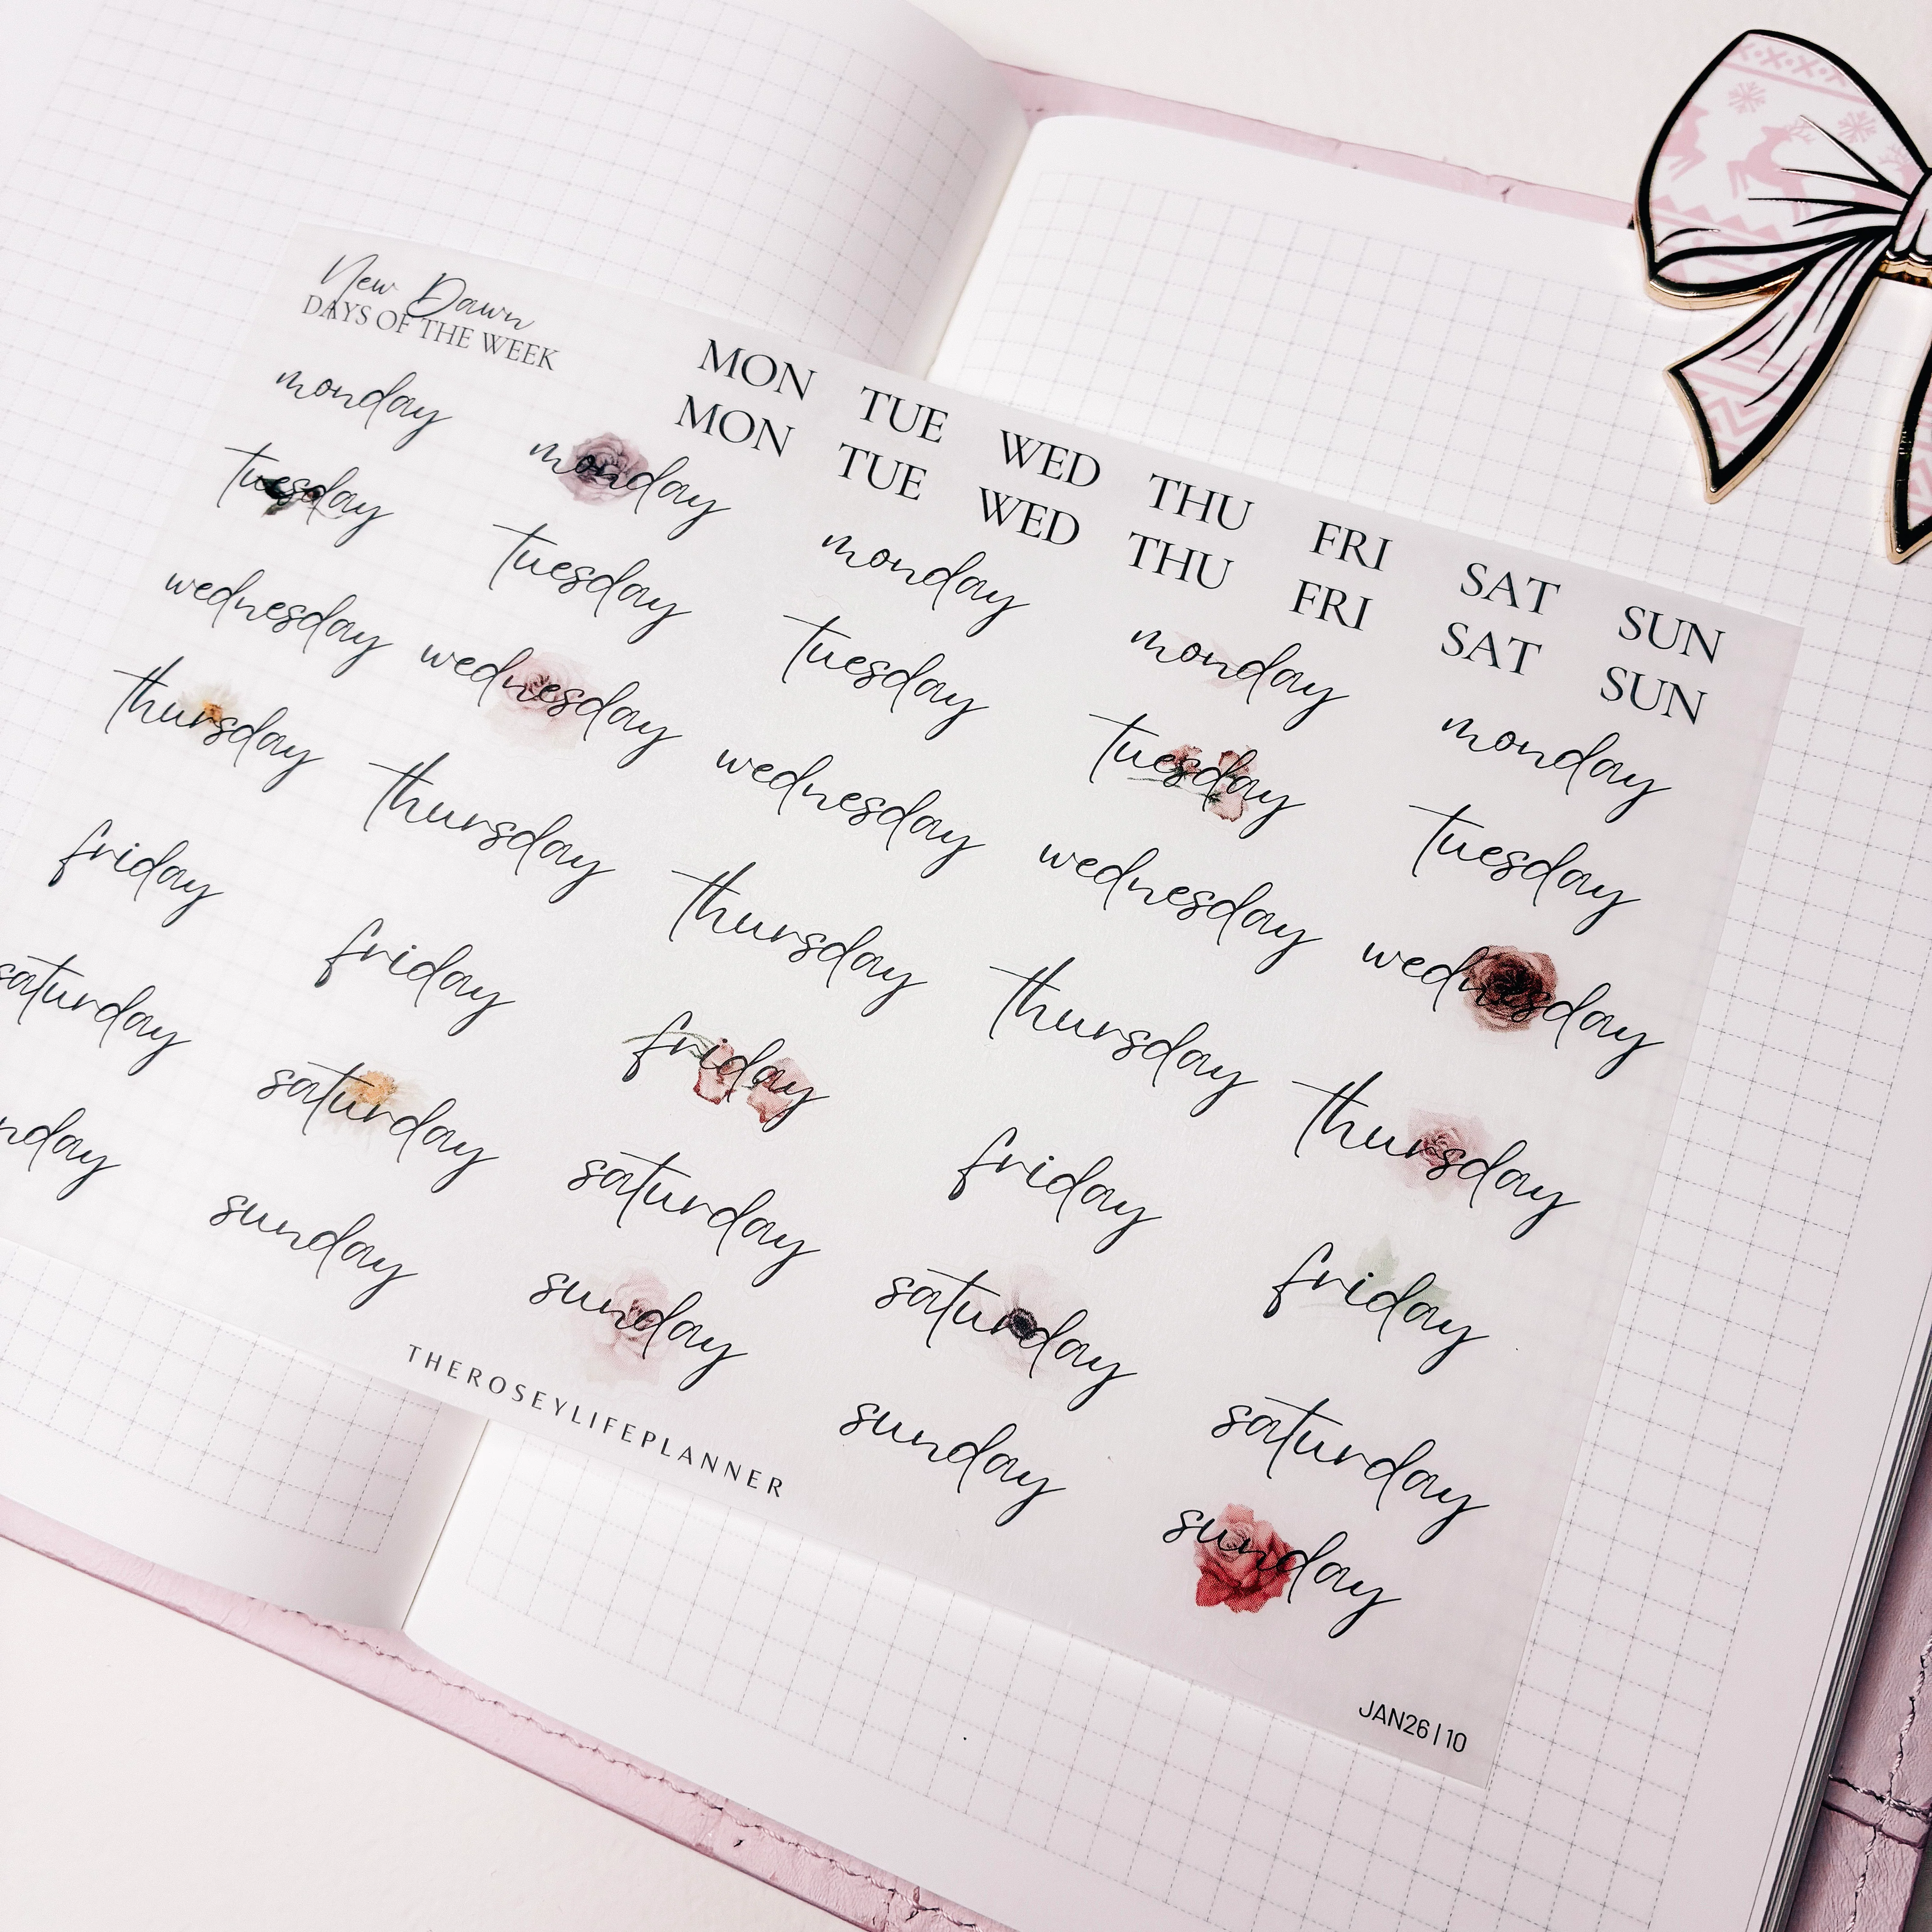 New Dawn
DAYS OF THE WEEK
MON TUE WED THU FRI SAT SUN
MON TUE WED THU FRI SAT SUN
monday monday monday monday monday
tuesday tuesday tuesday tuesday tuesday
wednesday wednesday wednesday wednesday wednesday
thursday thursday thursday thursday thursday
friday friday friday friday friday
saturday saturday saturday saturday saturday
nday sunday sunday sunday sunday
THEROSEYLIFEPLANNER
JAN26 | 10